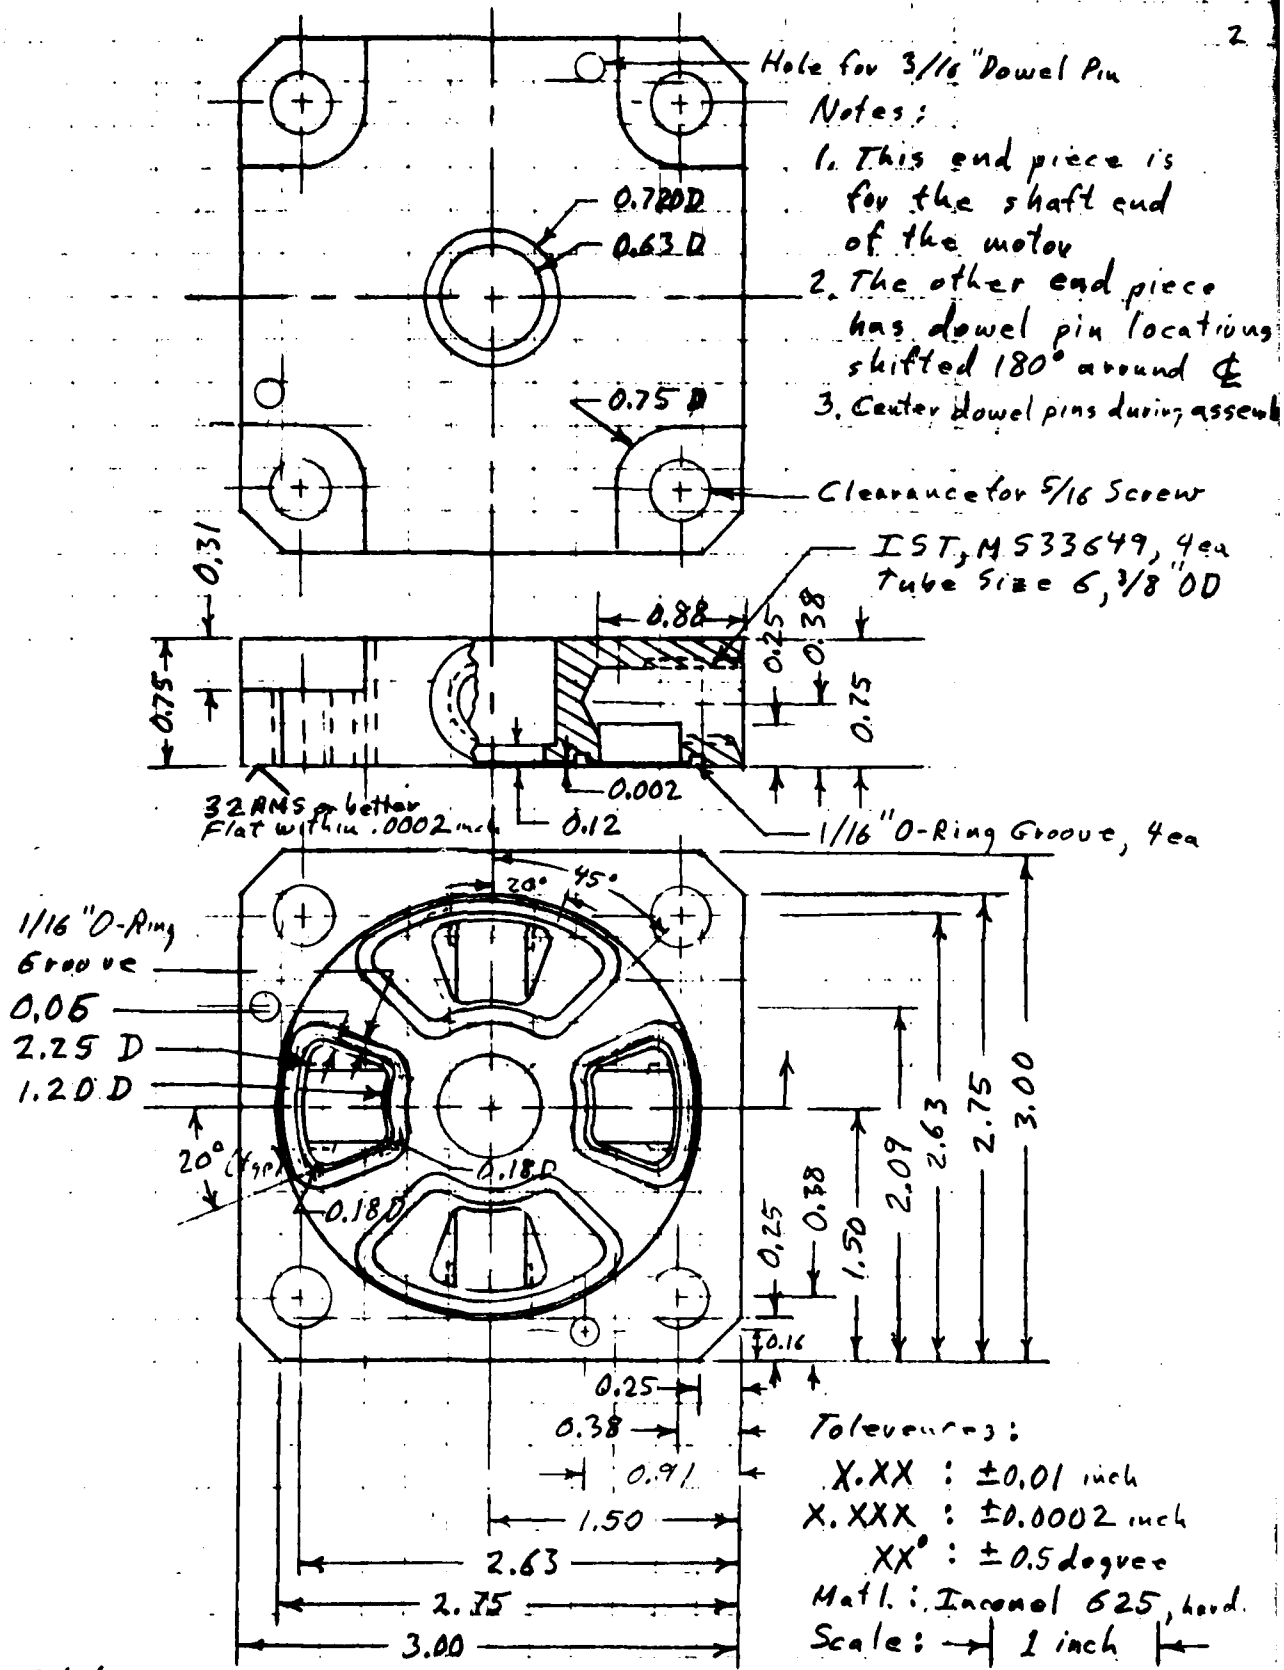 2
Hole for 3/16" Dowel Pin
Notes:
1. This end piece is
for the shaft end
of the motor
2. The other end piece
has dowel pin locations
shifted 180° around ℄
3. Center dowel pins during assemb
0.720D
0.63 D
0.75 D
Clearance for 5/16 Screw
IST, MS33649, 4ea
Tube Size 6, 3/8" OD
0.31
0.75
0.88
0.25
0.38
0.75
0.002
0.12
32 RMS or better
Flat within .0002 inch
1/16" O-Ring Groove, 4ea
20°
45°
1/16" O-Ring
Groove
0.06
2.25 D
1.20 D
20° (typ)
0.18D
0.18D
0.16
0.25
0.38
1.50
2.09
2.63
2.75
3.00
0.25
0.38
0.91
1.50
2.63
2.75
3.00
Tolerences:
X.XX : ±0.01 inch
X.XXX : ±0.0002 inch
XX° : ±0.5 degree
Matl.: Inconel 625, hard.
Scale: 1 inch